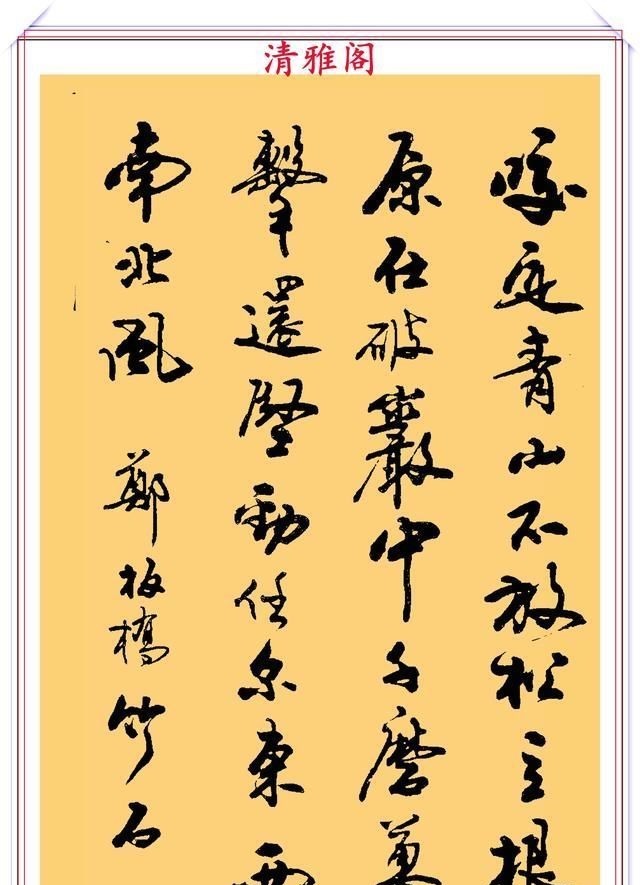 清雅阁
咬定青山不放松立根
原在破巖中千磨萬
擊還堅勁任尔東西
南北風 鄭板橋竹石